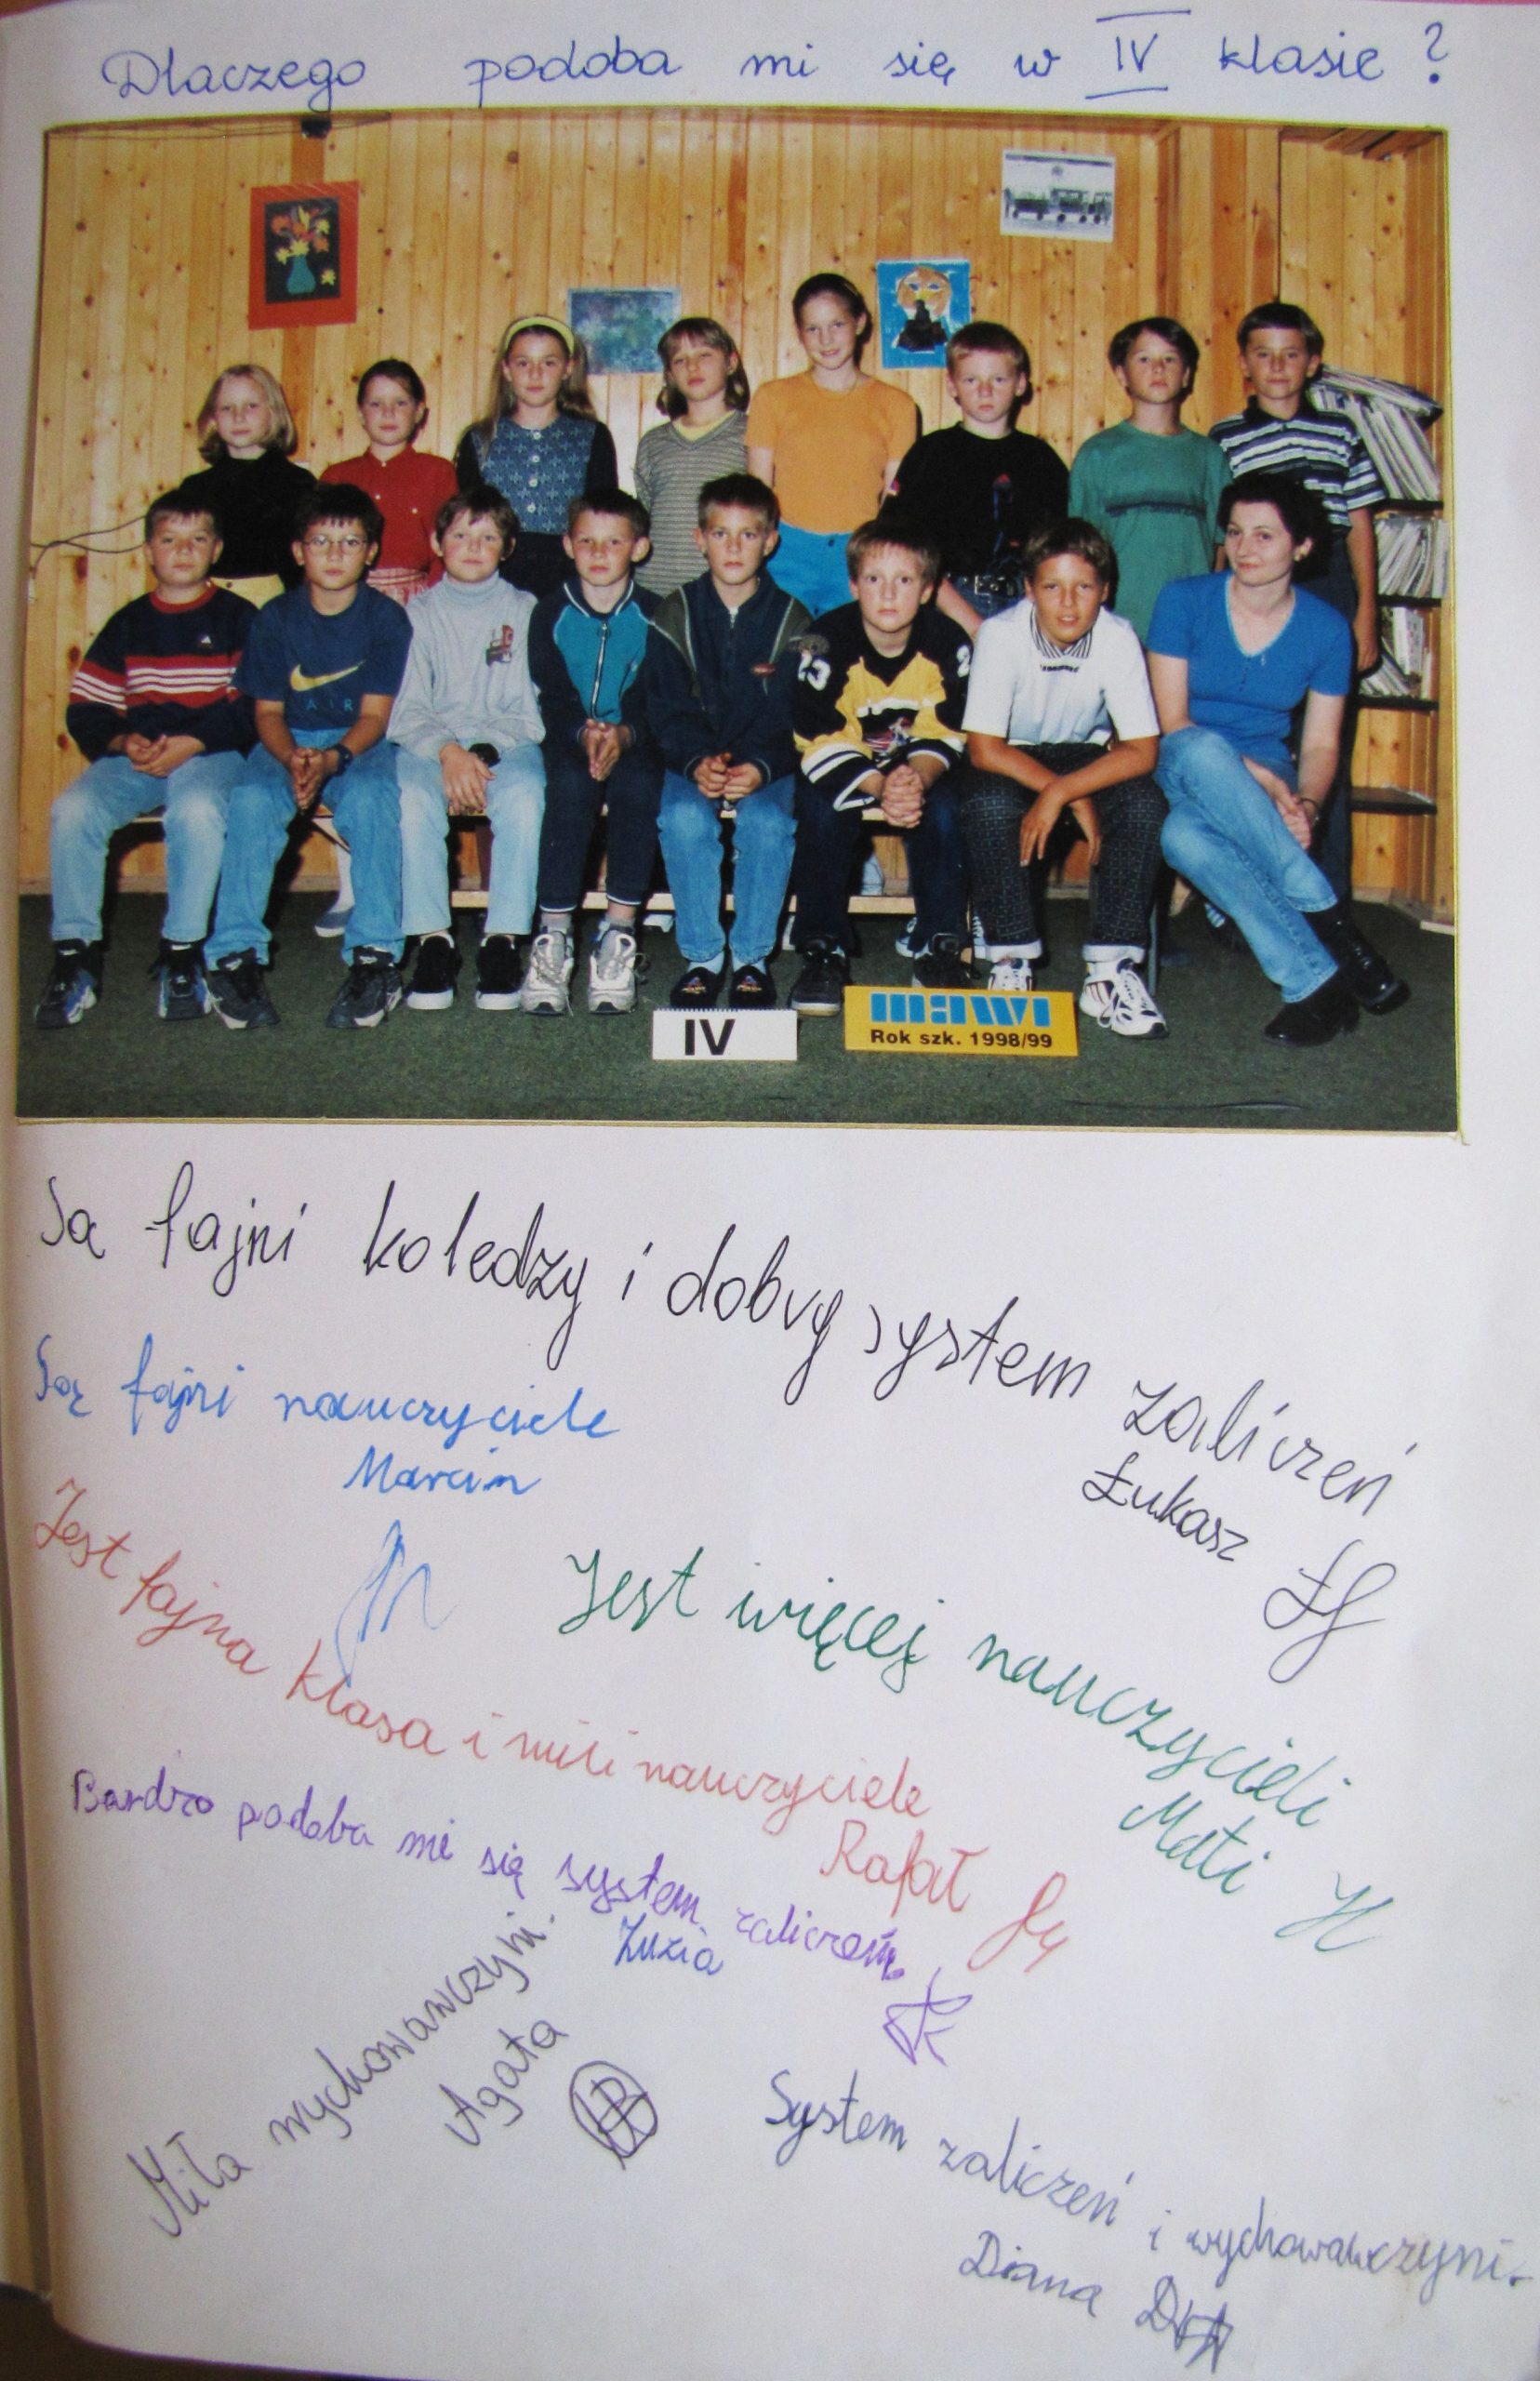 Dlaczego podoba mi się w IV klasie?
AIR
IV
mawi
Rok szk. 1998/99
Są fajni koledzy i dobry system zaliczeń
Łukasz
Są fajni nauczyciele
Marcin
Jest fajna klasa i mili nauczyciele
Rafał
Jest więcej nauczycieli
Mati
Bardzo podoba mi się system zaliczeń.
Zuzia
Miła wychowawczyni.
Agata
System zaliczeń i wychowawczyni.
Diana